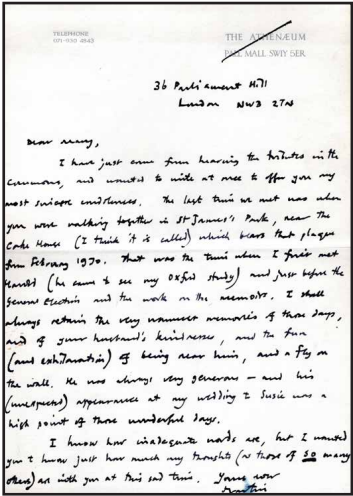 TELEPHONE
071-930 4843
THE ATHENÆUM
PALL MALL SW1Y 5ER
36 Parliament Hill
London NW3 2TN
Dear Mary,
I have just come from hearing the tributes in the
Commons, and wanted to write at once to offer you my
most sincere condolences. The last time we met was when
you were walking together in St James's Park, near the
Cake House (I think it is called) which bears that plaque
from February 1970. That was the time when I first met
Harold (he came to see my Oxford study) and just before the
General Election and the work on the memoirs. I shall
always retain the very warmest memories of those days,
and of your husband's kindnesses, and the fun
(and exhilaration) of being near him, and a fly on
the wall. He was always very generous – and his
(unexpected) appearance at my wedding to Susie was a
high point of those wonderful days.
I know how inadequate words are, but I wanted
you to know just how much my thoughts (as those of so many
others) are with you at this sad time. Yours ever
Martin